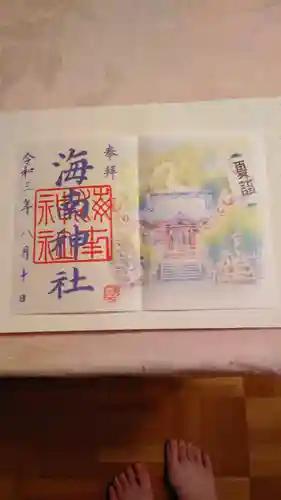 奉拝
海南神社
海南神社
令和三年八月十日
夏詣